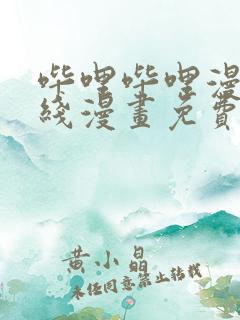 哔哩哔哩漫
线漫畫免費
黄小晶
未经同意禁止转载